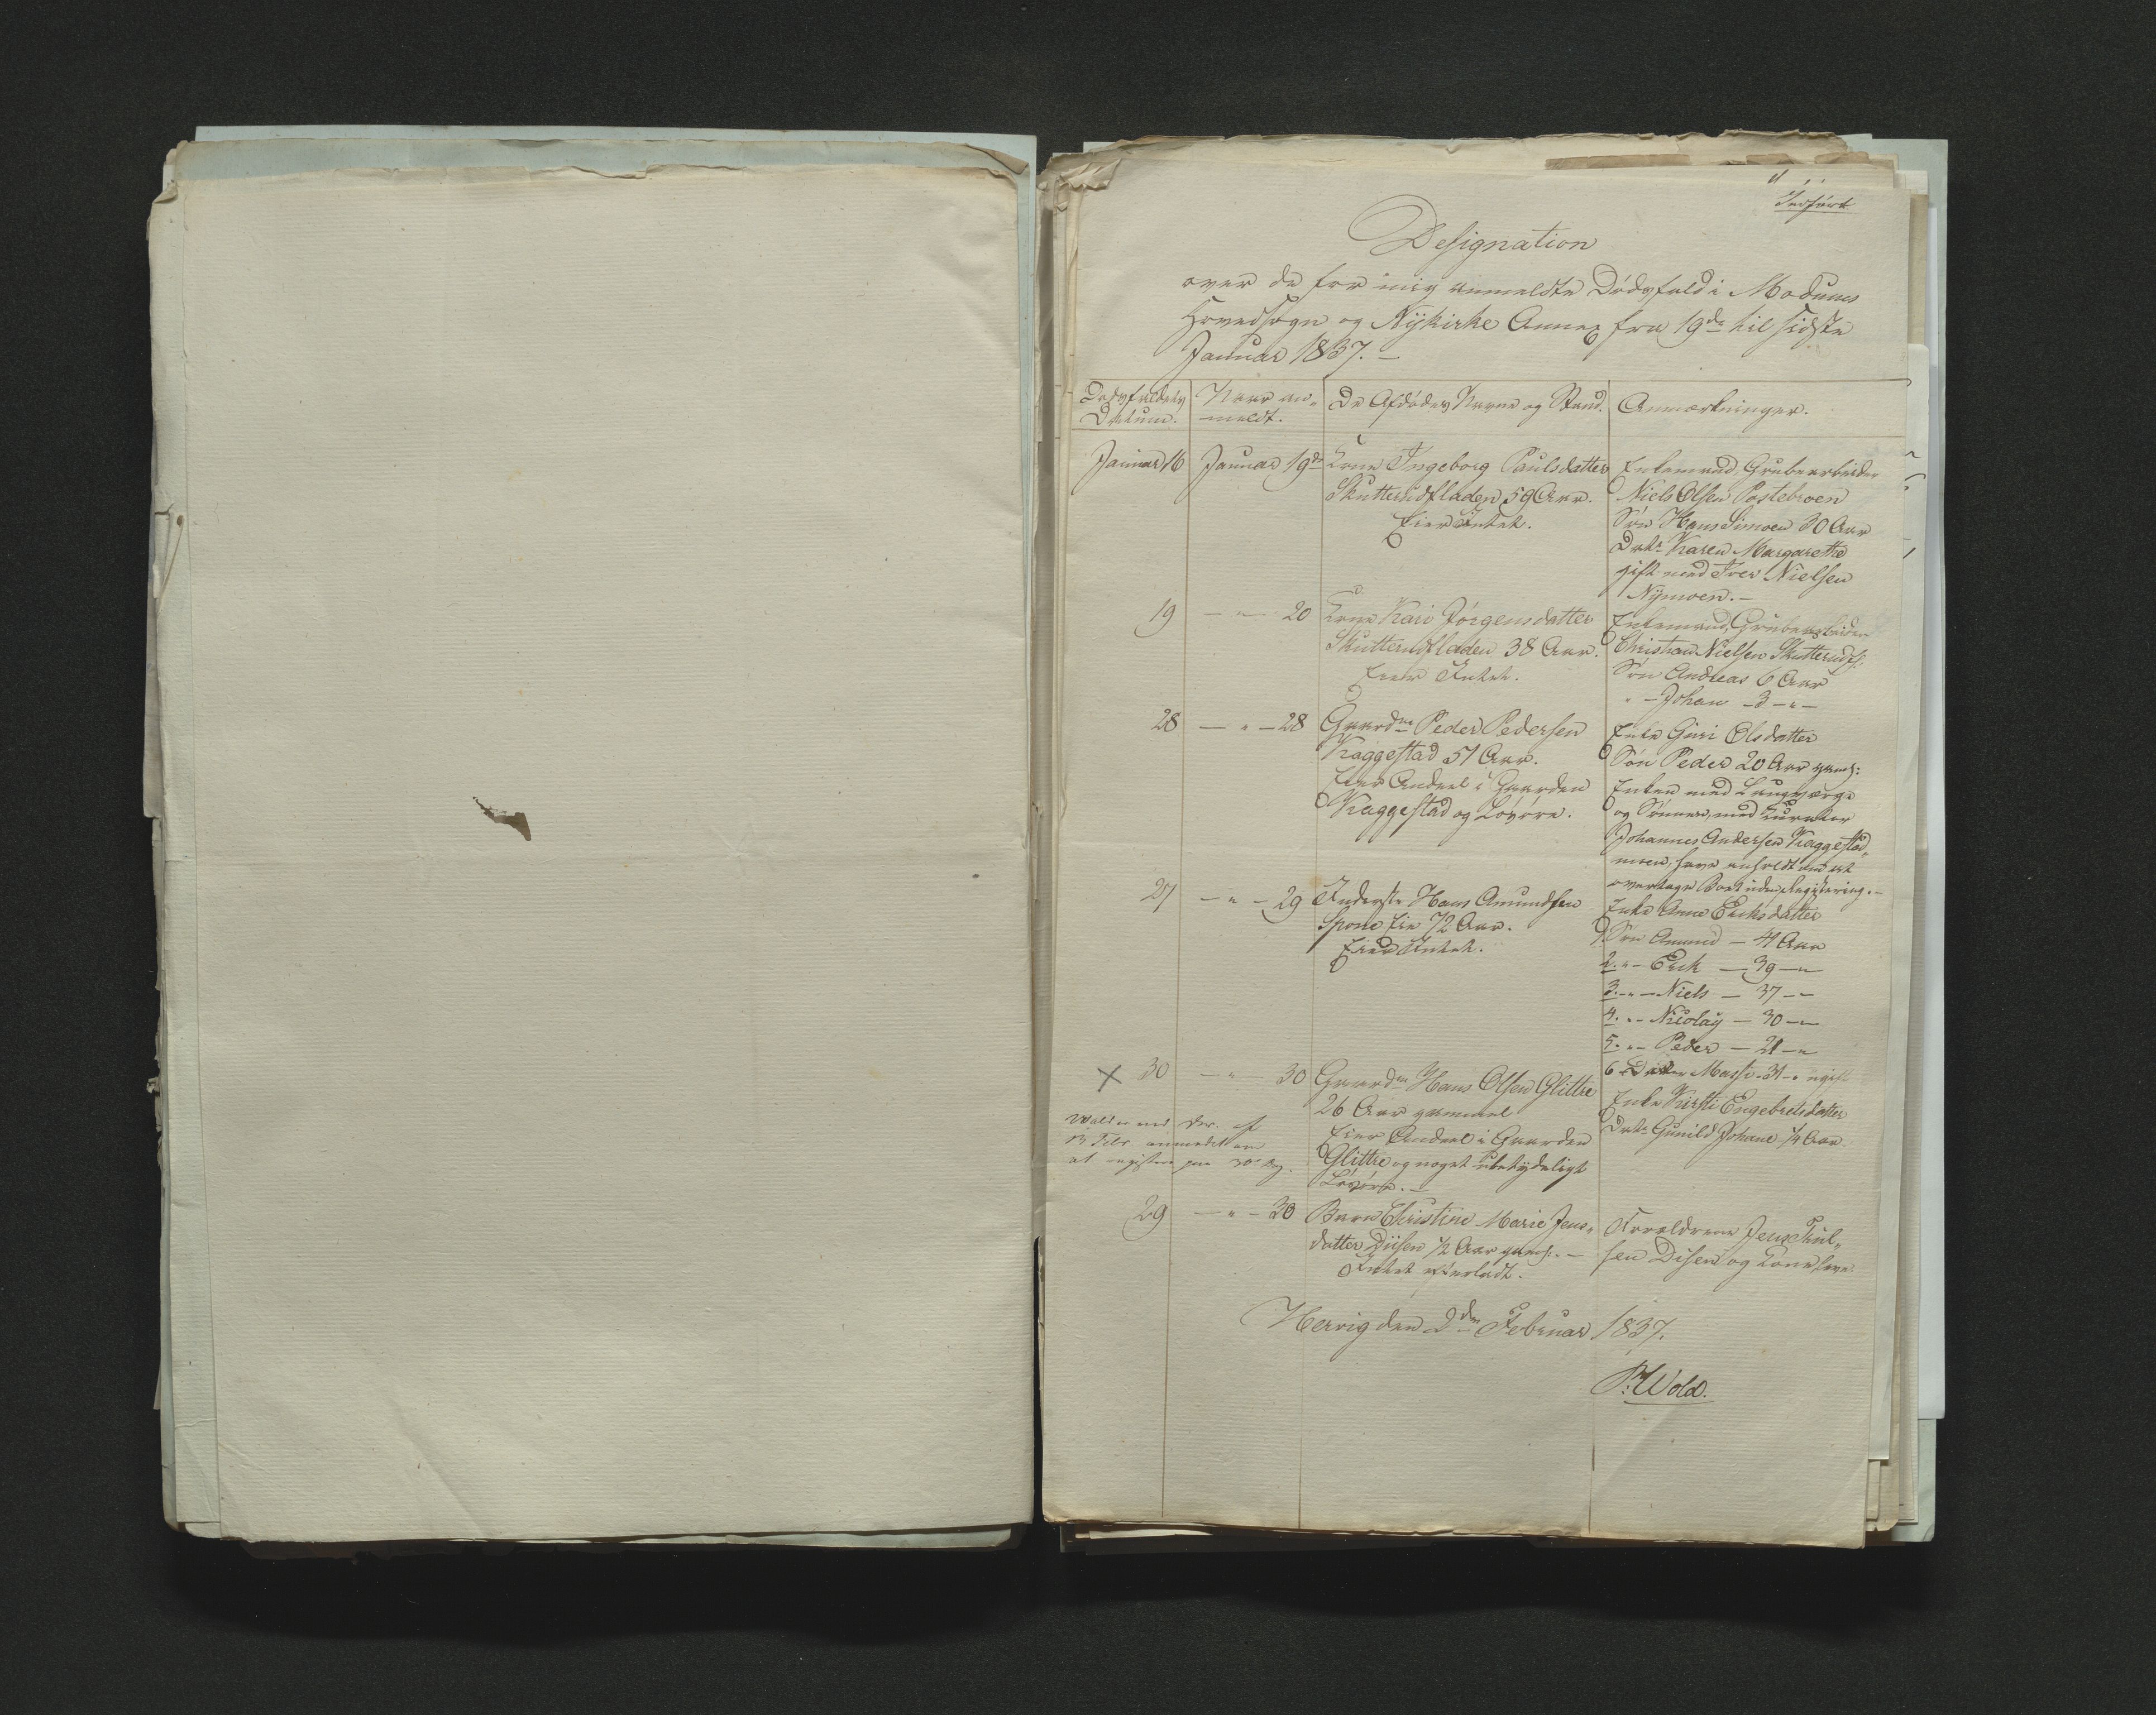 Indført
Designation
over de for mig anmeldte Dødsfald i Modums
Hovedsogn og Nykirke Annex fra 19de til sidste
Januar 1837. —
Dødsfaldets Datum.
Naar an-
meldt.
De Afdødes Navne og Stand.
Anmærkninger.
Januar 16
Januar 19de
Kone Ingeborg Paulsdatter
Skutterudfladen 59 Aar.
Eier Intet.
Enkemand, Grubearbeider
Niels Olsen Postebroen
Søn Hans Simoen 30 Aar
Datr Karen Margarethe
gift med Iver Nielsen
Nymoen. —
19
— " — 20
Kone Kari Jørgensdatter
Skutterudfladen 38 Aar.
Eier Intet.
Enkemand, Grubearbeider
Christian Nielsen Skutterudf:
Søn Andreas 6 Aar
" — Johan — 3 — " —
28
— " — 28
Gaardm Peder Pedersen
Kaggestad 51 Aar.
Eier Andeel i Gaarden
Kaggestad og Løsøre.
Enke Guri Olsdatter
Søn Peder 20 Aar gaml:
Enken med Laugværge
og Sønnen, med Curator
Johannes Andersen Kaggestad-
moen, have anholdt om at
overtage Boet uden Registering. —
27
— " — 29
Inderste Hans Amundsen
Spone Eie 72 Aar.
Eier Intet.
Enke Anne Eriksdatter
1 Søn Amund — 41 Aar
2. " — Erik — 39 — "
3. — " — Niels — 37 — "
4. " — Nicolay — 30 — "
5. " — Peder — 21 — "
6 Datter Massi — 31 — " ugift
X 30
— " — 30
Gaardm Hans Olsen Glittre
26 Aar gammel
Eier Andeel i Gaarden
Glittre og noget ubetydeligt
Løsøre. —
Enke Kirsti Engebretsdatter
Datr Gunild Johane 1/4 Aar.
Wold er ved af
13 Febr anmodet om
at registere paa 30te Dag.
29
— " — 30
Barn Christine Marie Jens-
datter Diisen 1/2 Aar gaml. —
Intet efterladt.
Forældrene Jens Paul-
sen Disen og Kone leve.
Hervig den 2den Februar 1837.
P. Wold.